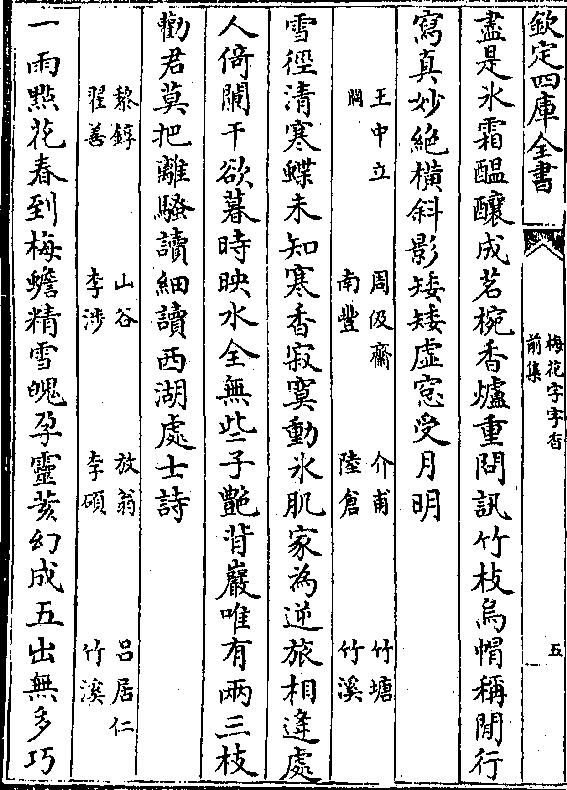 欽定四庫全書
梅花字字香
前集
五
盡是氷霜醖釀成茗椀香爐重問訊竹枝烏帽稱閒行
寫真妙絶横斜影矮矮虚窓受月明
王中立 周伋齋 介甫 竹塘
南豐 陸倉 竹溪
雪徑清寒蝶未知寒香寂寞動氷肌家為逆旅相逢處
人倚闌干欲暮時映水全無些子艶背巖唯有兩三枝
勸君莫把離騷讀細讀西湖處士詩
黎錞 山谷 放翁 呂居仁
翟善 李涉 李碩 竹溪
一雨點花春到梅蟾精雪魄孕靈荄幻成五出無多巧